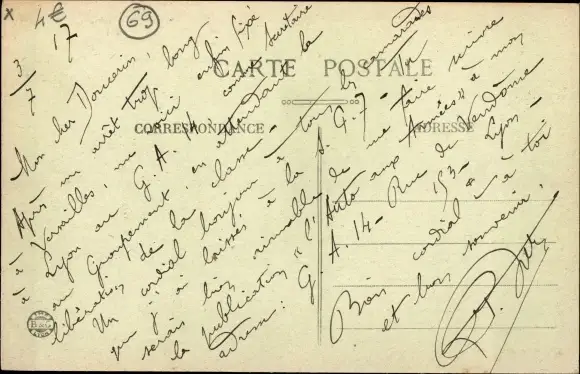 X 4€ 69
CARTE POSTALE
CORRESPONDANCE
ADRESSE
3/7 17
Mon cher Doucerin,
Après un arrêt trop long
à Versailles, me voici enfin fixé
à Lyon au G.A. 14, comme secrétaire
au Groupement, en attendant la
libération de la classe -
Un cordial bonjour à tous les camarades
que j'ai laissés à la S.G. 7 - et
serais bien aimable de me faire suivre
la publication "l'Auto aux Armées" à mon
adresse : G.A. 14 - Rue de Vendôme
153 - Lyon -
Bien cordial à toi
et bon souvenir,